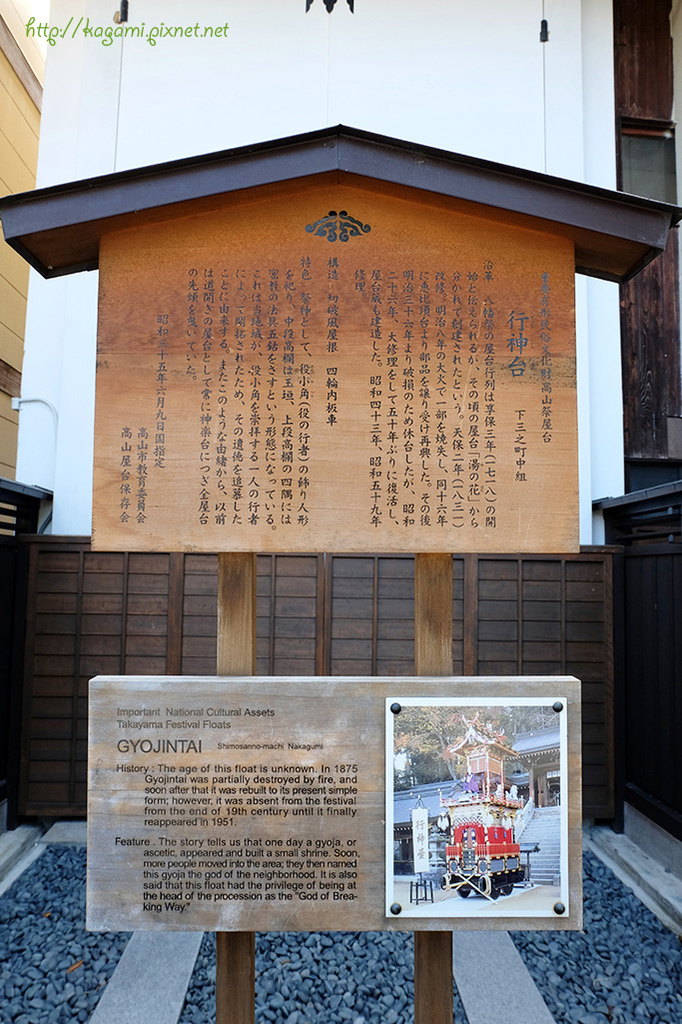 http://kagami.pixnet.net
重要有形民俗文化財高山祭屋台
行神台
下三之町中組
沿革 八幡祭の屋台行列は享保三年(一七一八)の開
始と伝えられるが、その頃の屋台「湯の花」から
分かれて創建されたという。天保二年(一八三一)
改修。明治八年の大火で一部を焼失し、同十六年
に恵比須台より部品を譲り受け再興した。その後
明治三十六年より破損のため休台したが、昭和
二十六年、大修理をして五十年ぶりに復活し、
屋台蔵も建造した。昭和四十三年、昭和五十九年
修理。
構造 切破風屋根 四輪内板車
特色 祭神として、役小角(役の行者)の飾り人形
を祀り、中段高欄は玉垣、上段高欄の四隅には
密教の法具五鈷をさすという形態になっている。
これは当地域が、役小角を崇拝する一人の行者
によって開拓されたため、その遺徳を追慕した
ことに由来する。またこのような由緒から、以前
は道開きの屋台として常に神楽台につぎ全屋台
の先頭を曳いていた。
昭和三十五年六月九日国指定
高山市教育委員会
高山屋台保存会
Important National Cultural Assets
Takayama Festival Floats
GYOJINTAI Shimosanno-machi Nakagumi
History : The age of this float is unknown. In 1875
Gyojintai was partially destroyed by fire, and
soon after that it was rebuilt to its present simple
form; however, it was absent from the festival
from the end of 19th century until it finally
reappeared in 1951.
Feature . The story tells us that one day a gyoja, or
ascetic, appeared and built a small shrine. Soon,
more people moved into the area; they then named
this gyoja the god of the neighborhood. It is also
said that this float had the privilege of being at
the head of the procession as the "God of Brea-
king Way."
行神臺